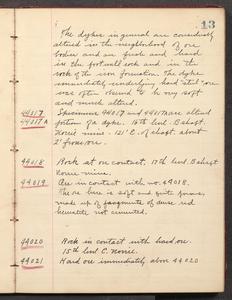 13
The dykes in general are considerably
altered in the neighborhood of ore
bodies and are quick and hard
in the footwall rock and in the
rock of the iron formation. The dyke
immediately underlying hard "slate" ore
was often found to be very soft
and much altered.
44017 Specimens 44017 and 44017A are altered
44017A portion of a dyke. 16th level B shaft.
Norrie mine. 121' E. of shaft about
2' from ore.
44018 Rock at ore contact. 17th level B shaft
Norrie mine.
44019 Ore in contact with no. 44018.
The ore here is soft and quite porous,
made up of fragments of dense red
hematite, not cemented.
44020 Rock in contact with hard ore.
15th level C. Norrie.
44021 Hard ore immediately above 44020